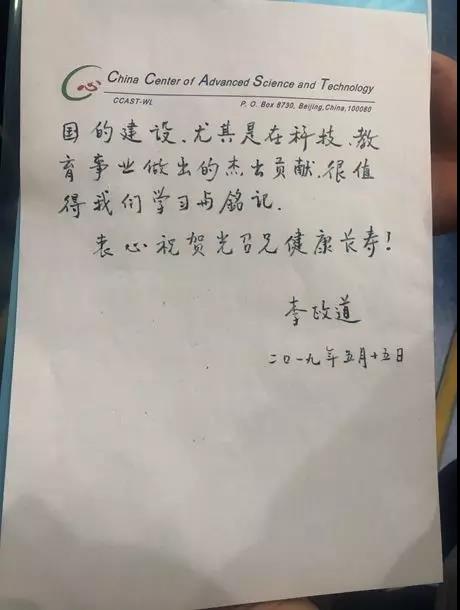 China Center of Advanced Science and Technology
CCAST-WL P. O. Box 8730, Beijing, China, 100080
国的建设、尤其是在科技、教
育事业做出的杰出贡献、很值
得我们学习与铭记.
衷心祝贺光召兄健康长寿!
李政道
二〇一九年五月十五日